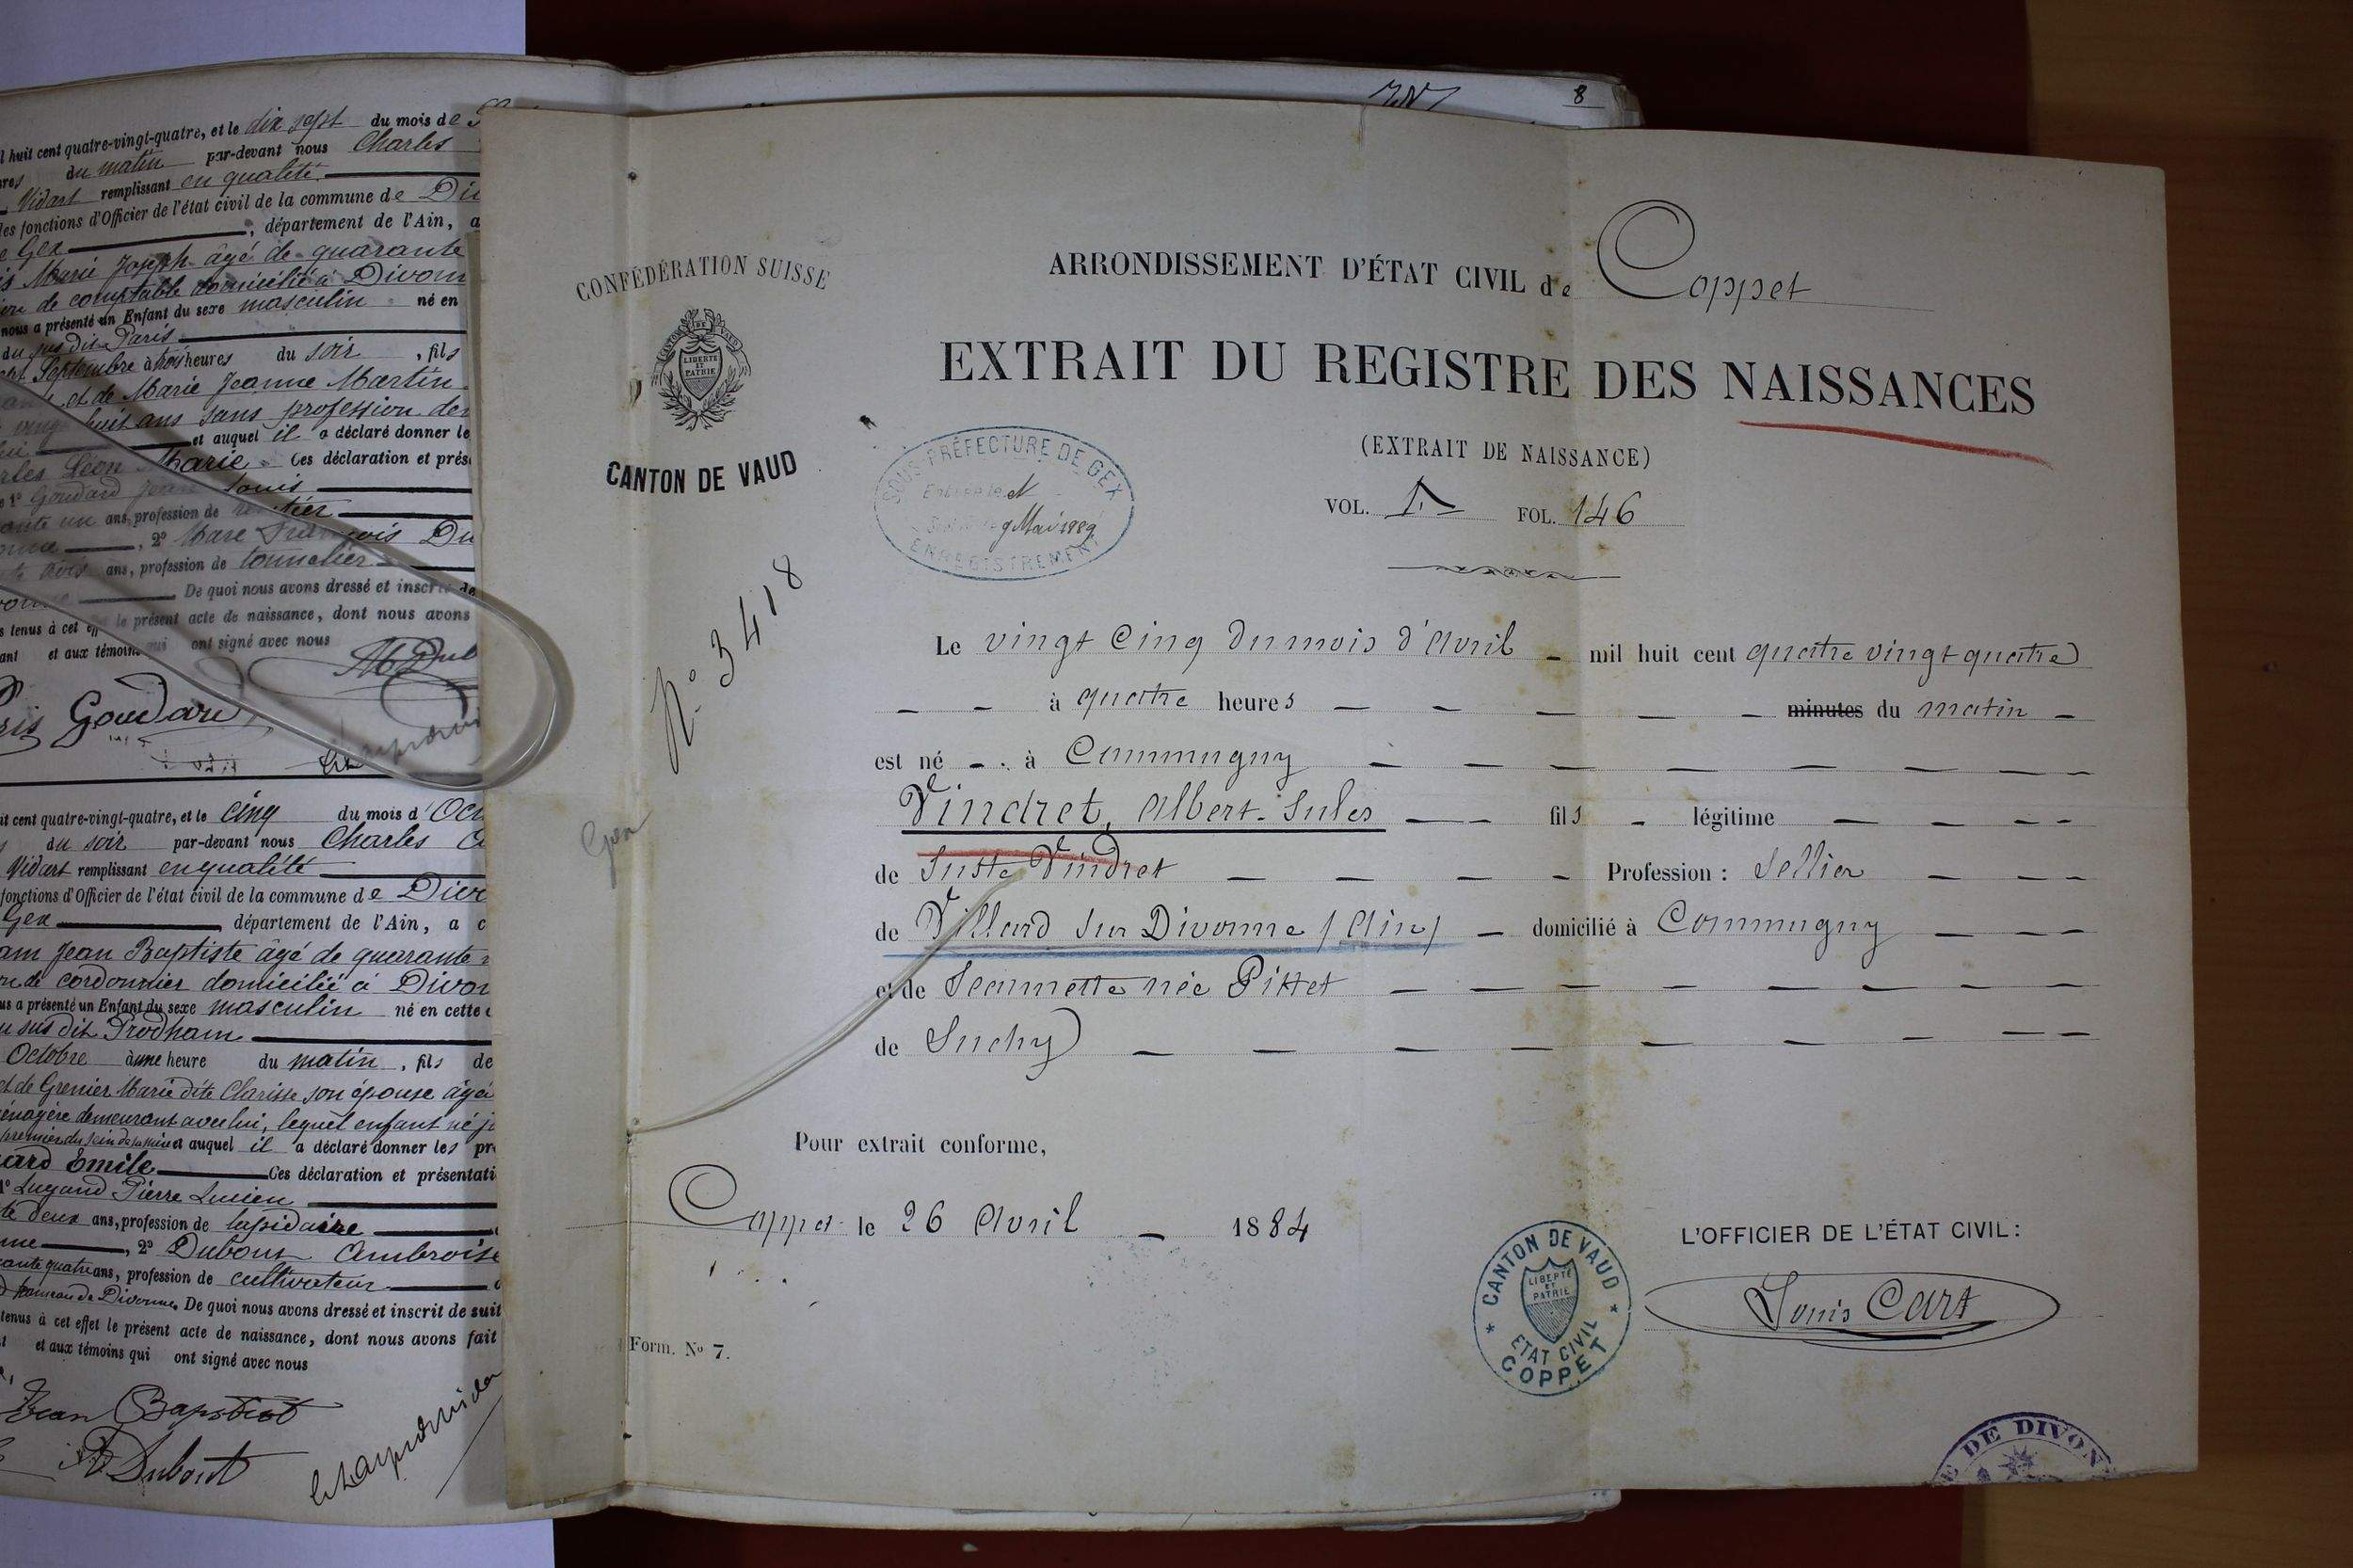 l huit cent quatre-vingt-quatre, et le dix sept du mois de
res du matin par-devant nous Charles
Vidart remplissant en qualité
les fonctions d'Officier de l'état civil de la commune de Div
e Gex , département de l'Ain, a
is Marie Joseph âgé de quarante
ion de comptable domicilié à Divonn
nous a présenté un Enfant du sexe masculin né en
du sus dit Paris
Septembre à trois heures du soir , fils
et de Marie Jeanne Martin
vingt huit ans sans profession de
et auquel il a déclaré donner le
rles Léon Marie Ces déclaration et prés
1º Goudard Jean Louis
ante un ans, profession de rentier
onne , 2º Marc François Du
te trois ans, profession de tonnelier
De quoi nous avons dressé et inscrit de
s tenus à cet eff le présent acte de naissance, dont nous avons
ant et aux témoins qui ont signé avec nous
ris Goudard
it cent quatre-vingt-quatre, et le cinq du mois d'Oc
du soir par-devant nous Charles
Vidart remplissant en qualité
fonctions d'Officier de l'état civil de la commune de Divo
Gex , département de l'Ain, a c
am Jean Baptiste âgé de quarante
on de cordonnier domicilié à Divon
us a présenté un Enfant du sexe masculin né en cette
u sus dit Prodham
Octobre à une heure du matin , fils de
et de Grenier Marie dite Clarisse son épouse âgée
énagère demeurant avec lui, lequel enfant né
premier du sein de sa mère et auquel il a déclaré donner les pr
ard Emile Ces déclaration et présentati
1º Lugand Pierre Lucien
te deux ans, profession de lapidaire
nne , 2º Dubout Ambroise
ante quatre ans, profession de cultivateur
hameau de Divonne. De quoi nous avons dressé et inscrit de suit
tenus à cet effet le présent acte de naissance, dont nous avons fait
et aux témoins qui ont signé avec nous
Jean Baptist
A Dubout
8
CONFÉDÉRATION SUISSE
CANTON DE VAUD
LIBERTÉ
ET
PATRIE
CANTON DE VAUD
ARRONDISSEMENT D'ÉTAT CIVIL de Coppet
EXTRAIT DU REGISTRE DES NAISSANCES
(EXTRAIT DE NAISSANCE)
SOUS-PRÉFECTURE DE GEX
9 Mai 1889
ENREGISTREMENT
VOL. FOL. 146
Nº 3418
Gex
Le vingt cinq du mois d'Avril - mil huit cent quatre vingt quatre
à quatre heures minutes du matin
est né à Commugny
Vindret, Albert-Jules fils légitime
de Juste Vindret Profession : Sellier
de Villard sur Divonne (Ain) domicilié à Commugny
et de Jeannette née Pittet
de Suchy
Pour extrait conforme,
Coppet le 26 Avril 1884
L'OFFICIER DE L'ÉTAT CIVIL:
Louis Cart
CANTON DE VAUD
LIBERTÉ
ET
PATRIE
ETAT CIVIL
COPPET
Form. Nº 7.
E DE DIVON